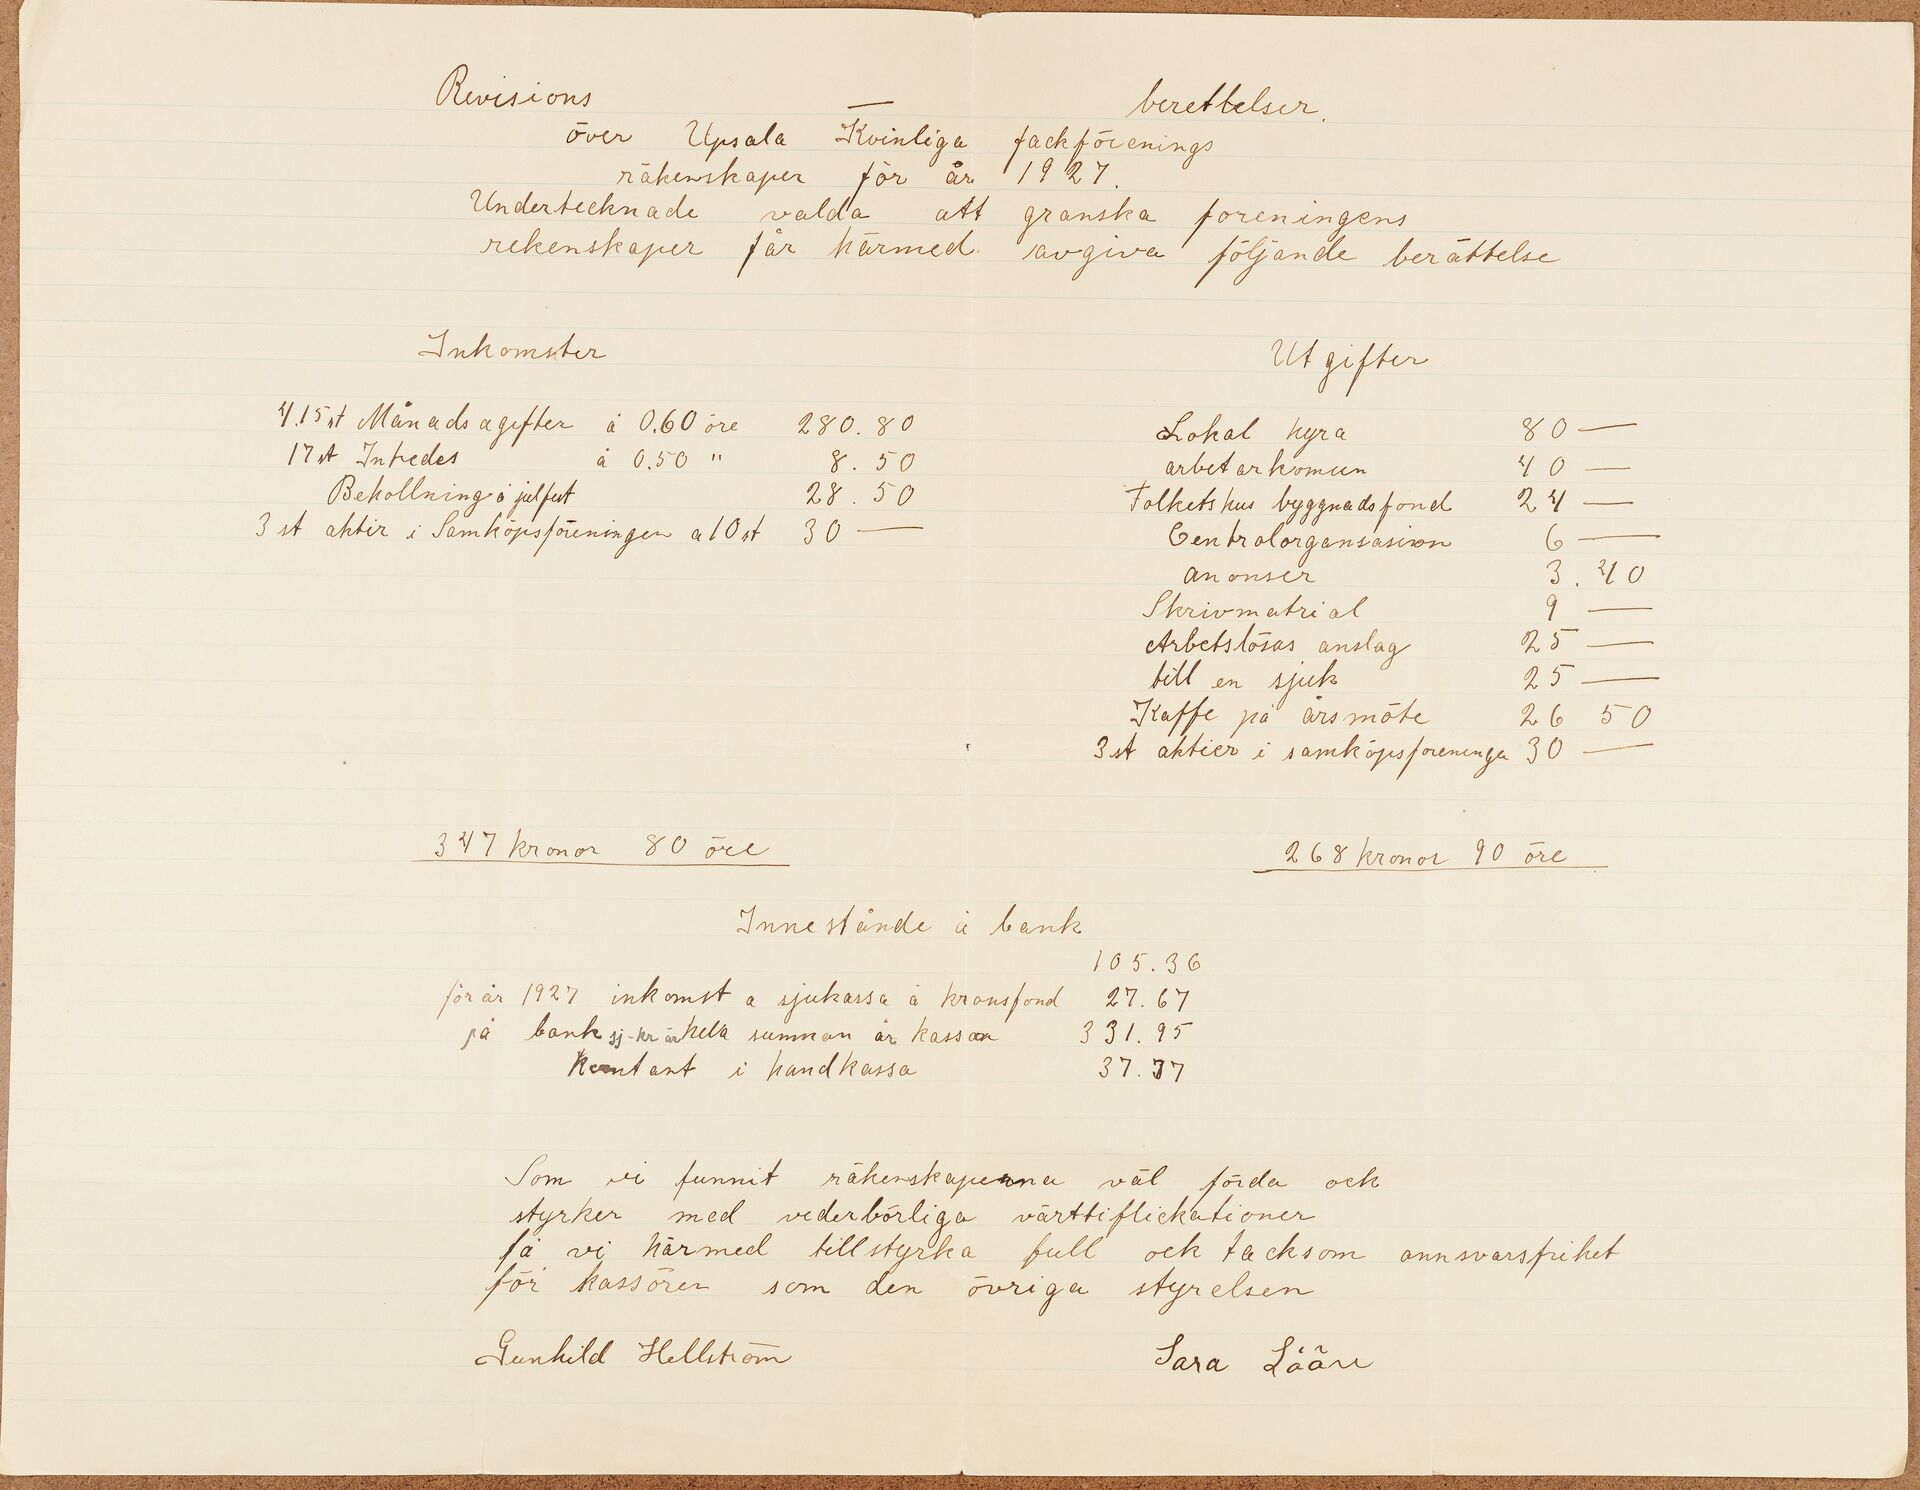 Revisions — berettelser.
över Upsala Kvinliga fackförenings
räkenskaper för år 1927.
Undertecknade valda att granska föreningens
rekenskaper får härmed avgiva följande berättelse
Inkomster
4.15 st Månadsagifter å 0.60 öre 280.80
17 st Intredes å 0.50 " 8.50
Behollning å julfest 28.50
3 st aktir i Samköpsföreningen a 10 st 30 —
Utgifter
Lokal hyra 80 —
arbetarkomun 40 —
Folketshus byggnadsfond 24 —
Centralorgansasion 6 —
anonser 3.40
Skrivmatrial 9 —
Arbetslösas anslag 25 —
till en sjuk 25 —
Kaffe på årsmöte 26 50
3 st aktier i samköpsföreninge 30 —
347 kronor 80 öre
268 kronor 90 öre
Innestånde å bank
105.36
för år 1927 inkomst a sjukassa å kransfond 27.67
på bank sj-kr är hela summan är kassan 331.95
Kontant i handkassa 37.37
Som vi funnit räkenskaperna väl förda ock
styrker med vederbörliga värttiflickationer
få vi härmed tillstyrka full ock tacksom annsvarsfrihet
för kassören som den övriga styrelsen
Gunhild Hellström
Sara Lööv